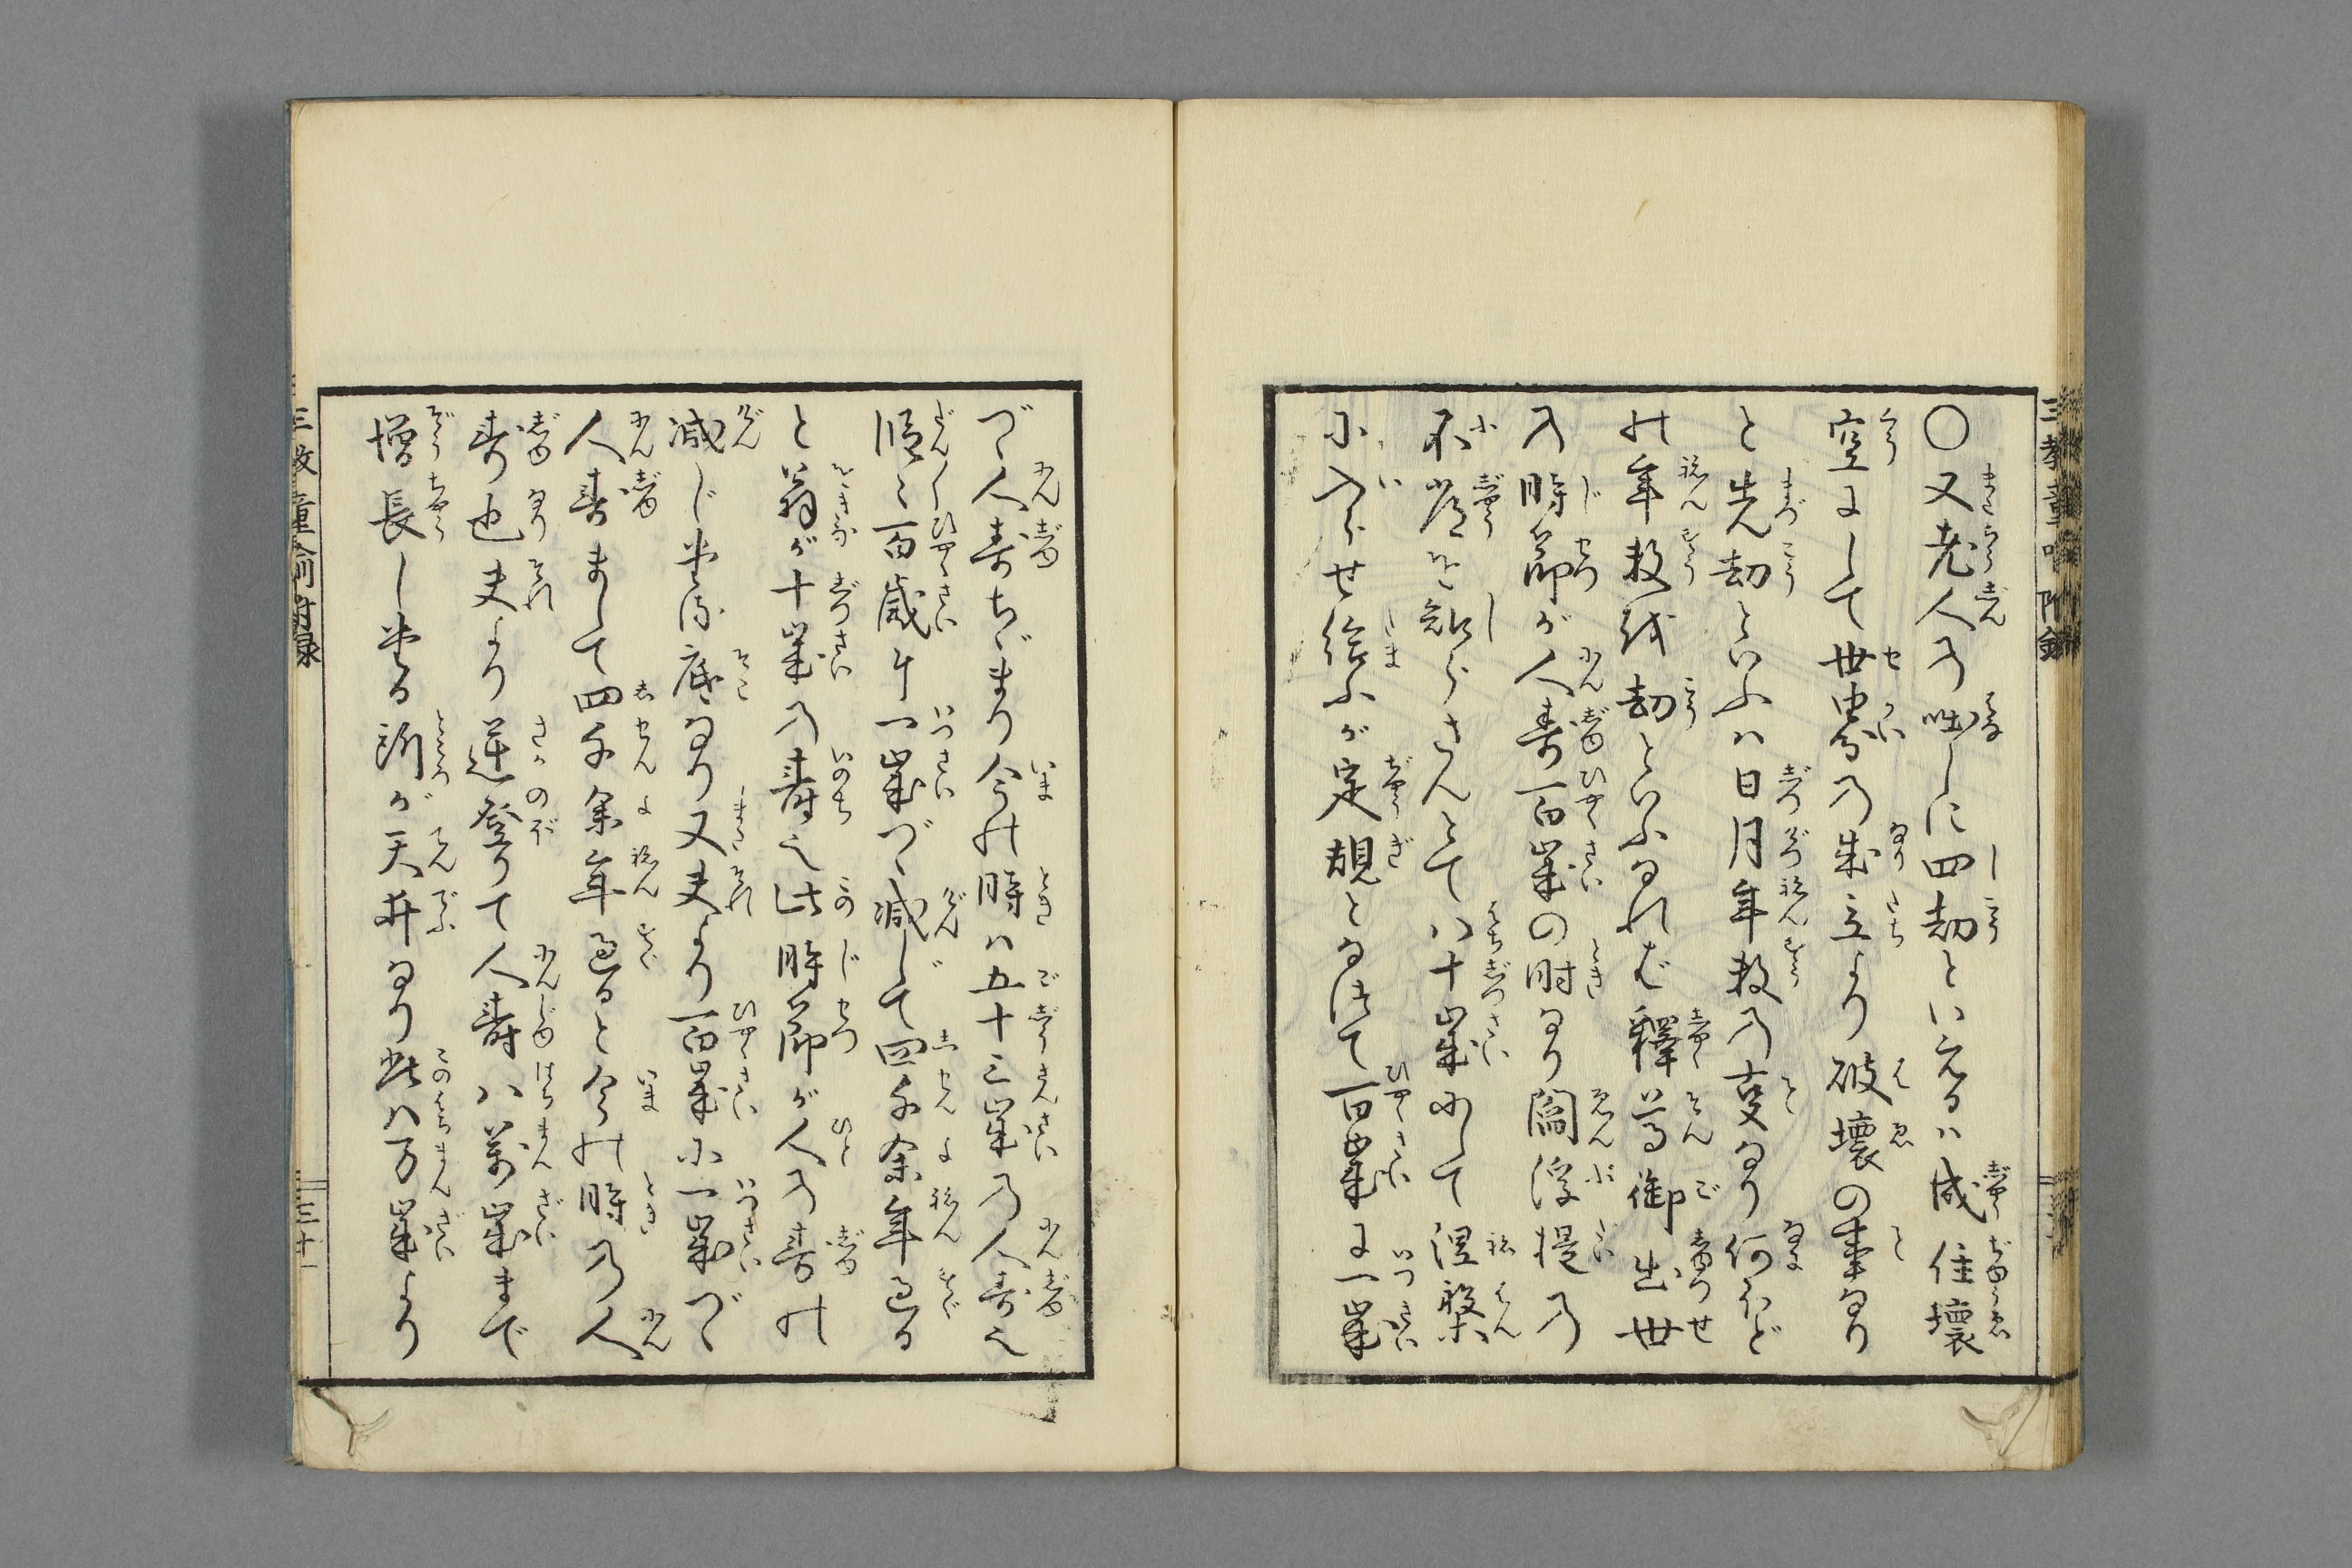 三教童喩附録
〇又老人の咄しに四劫といえるは成住壊
空にして世界の成立より破壊の事なり
と先劫といふは日月年数の支なり何ほど
の年数を劫といふなれば釋尊御出世
の時節が人寿百歳の時なり閻浮提の
不浄を知らさんとて八十歳にして涅槃
に入らせ給ふが定規となはて百歳に一歳
づゝ人寿ちゞまり今の時は五十三歳の人寿也
漸々百歳に一歳づゝ減じて四千余年過る
と翁が十歳の寿也此時節が人の寿の
減じ坐す底なり又夫より百歳に一歳づゝ
人寿まして四千余年過ると今の時の人
寿也夫より逆登りて人寿八萬歳まで
増長し坐る所が天井なり此八万歳より
三教童喩附録
三十一